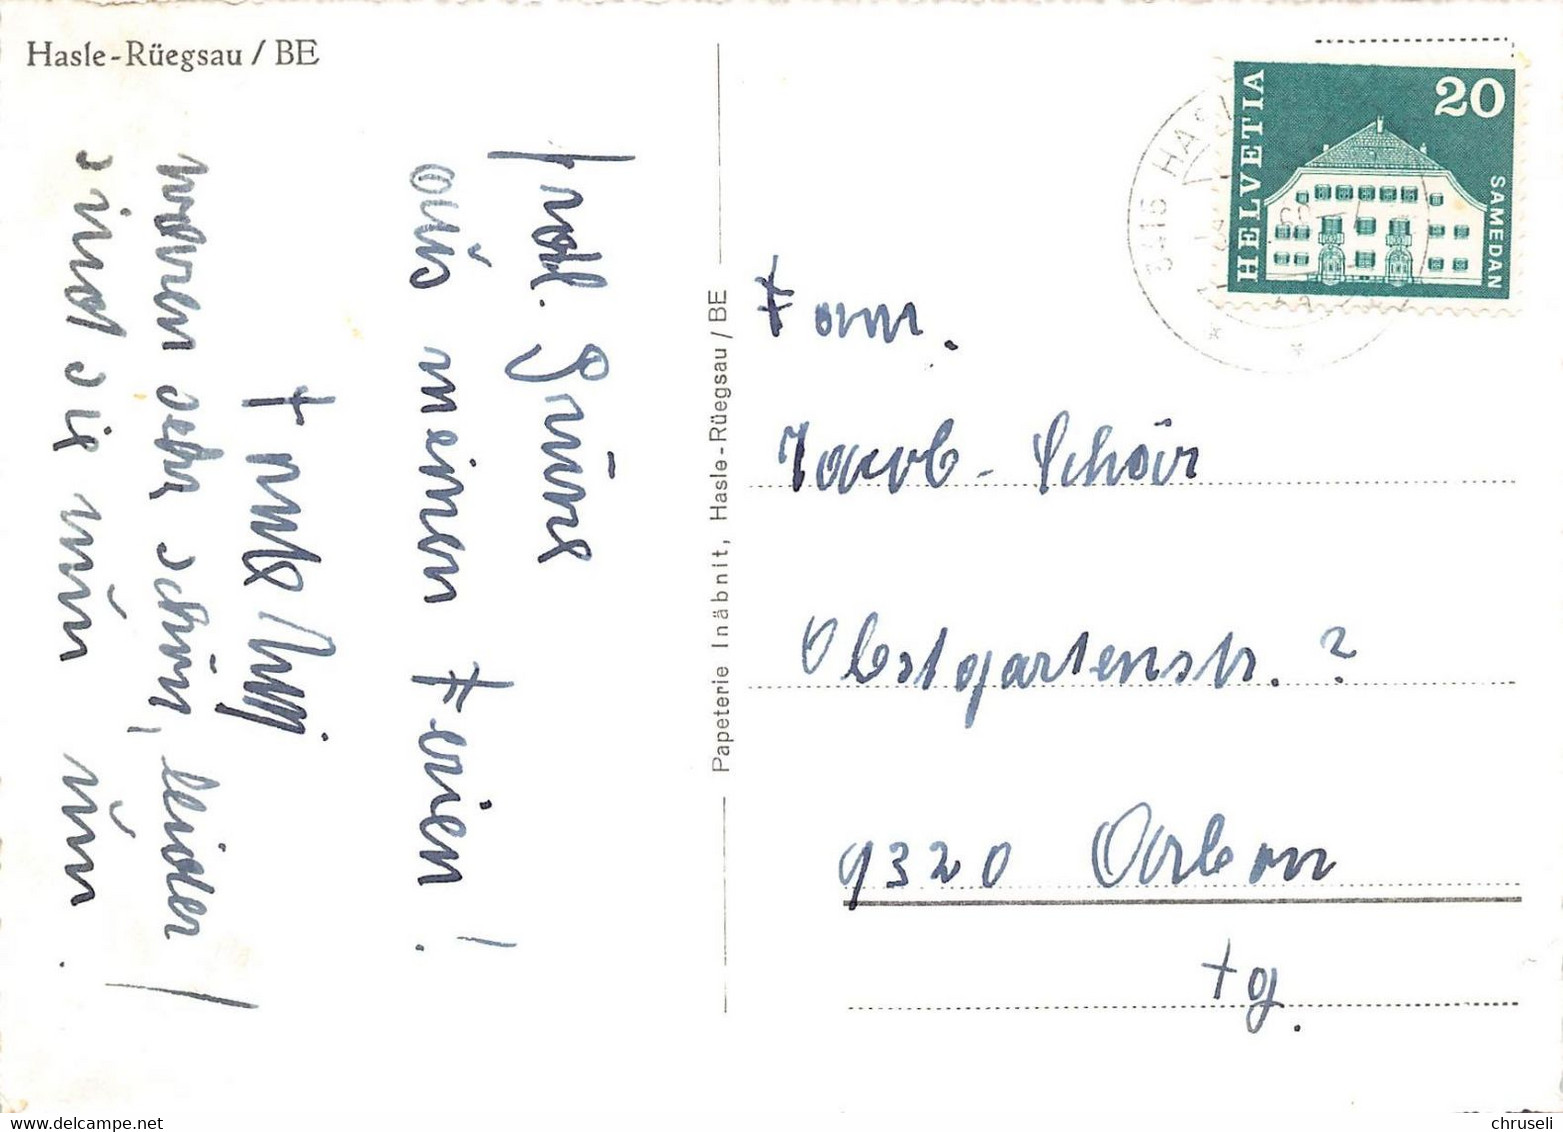 Hasle-Rüegsau / BE
frohl. Grüsse
aus meinen Ferien!
waren sehr schön, leider
sind sie nun um.
Papeterie Inäbnit, Hasle-Rüegsau / BE
HELVETIA
20
SAMEDAN
3415 HASL
Fam.
Jacob - Schär
Obstgartenstr. ?
9320 Arbon
Tg.
www.delcampe.net
chruseli